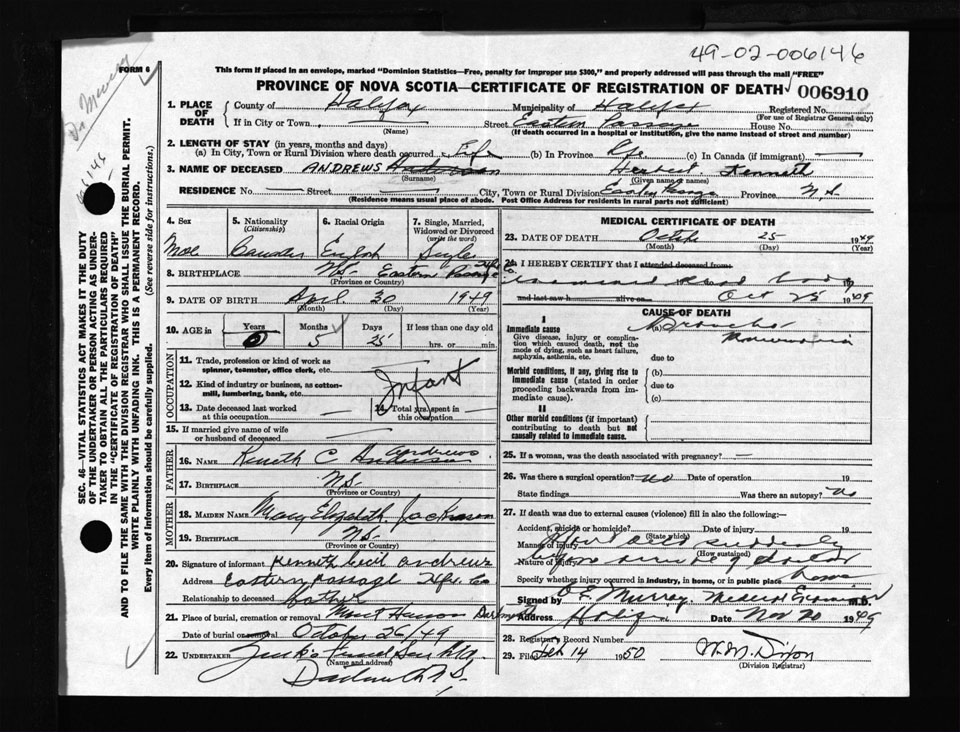 49-02-006146
Dr Murray
FORM 6
This form if placed in an envelope, marked "Dominion Statistics—Free, penalty for improper use $300," and properly addressed will pass through the mail "FREE"
PROVINCE OF NOVA SCOTIA—CERTIFICATE OF REGISTRATION OF DEATH
006910
1. PLACE OF DEATH
County of Halifax Municipality of Halifax Registered No.
(For use of Registrar General only)
If in City or Town Street Eastern Passage House No.
(Name) (If death occurred in a hospital or institution, give the name instead of street and number)
2. LENGTH OF STAY (in years, months and days)
(a) In City, Town or Rural Division where death occurred Life (b) In Province Life (c) In Canada (if immigrant) —
3. NAME OF DECEASED ANDREWS Anderson Herbert Kenneth
(Surname) (Given name or names)
RESIDENCE No. Street City, Town or Rural Division Province N.S.
(Residence means usual place of abode. Post Office Address for residents in rural parts not sufficient)
4. Sex
Male
5. Nationality
(Citizenship)
Canadian
6. Racial Origin
English
7. Single, Married, Widowed or Divorced
(write the word)
Single
8. BIRTHPLACE N.S. Eastern Passage Hfx Co.
(Province or Country)
9. DATE OF BIRTH April 30 1949
(Month) (Day) (Year)
10. AGE in
Years Months Days If less than one day old
0 5 25 hrs. or min.
OCCUPATION
11. Trade, profession or kind of work as
spinner, teamster, office clerk, etc.
12. Kind of industry or business, as cotton-
mill, lumbering, bank, etc.
Infant
13. Date deceased last worked
at this occupation —
14. Total yrs. spent in
this occupation
15. If married give name of wife
or husband of deceased —
FATHER
16. NAME Kenneth C Anderson Andrews
17. BIRTHPLACE N.S.
(Province or Country)
MOTHER
18. MAIDEN NAME Mary Elizabeth Jackson
19. BIRTHPLACE N.S.
(Province or Country)
20. Signature of informant Kenneth Cecil Andrews
Address Eastern Passage Hfx. Co
Relationship to deceased father
21. Place of burial, cremation or removal Mount Dartmouth
Date of burial or removal October 26/49
22. UNDERTAKER
(Name and address)
Dartmouth N.S.
MEDICAL CERTIFICATE OF DEATH
23. DATE OF DEATH October 25 1949
(Month) (Day) (Year)
24. I HEREBY CERTIFY that I attended deceased from:
dead body
and last saw h alive on Oct 25 1949
CAUSE OF DEATH
I
Immediate cause
Give disease, injury or complica-
tion which caused death, not the
mode of dying, such as heart failure,
asphyxia, asthenia, etc.
(a) Broncho
Pneumonia
due to
Morbid conditions, if any, giving rise to
immediate cause (stated in order
proceeding backwards from im-
mediate cause).
(b)
due to
(c)
II
Other morbid conditions (if important)
contributing to death but not
causally related to immediate cause.
25. If a woman, was the death associated with pregnancy? —
26. Was there a surgical operation? no Date of operation 19
State findings Was there an autopsy? No
27. If death was due to external causes (violence) fill in also the following:
Accident, suicide or homicide? Date of injury 19
(State which)
Manner of injury died suddenly
(How sustained)
Nature of injury
Specify whether injury occurred in industry, in home, or in public place home
Signed by Murray Medical Examiner M.D.
Address Date Nov 20 1949
28. Registrar's Record Number
29. Filed Feb 14 1950 W. M. Dixon
(Division Registrar)
SEC. 46—VITAL STATISTICS ACT MAKES IT THE DUTY
OF THE UNDERTAKER OR PERSON ACTING AS UNDER-
TAKER TO OBTAIN ALL THE PARTICULARS REQUIRED
IN THE "CERTIFICATE OF REGISTRATION OF DEATH"
AND TO FILE THE SAME WITH THE DIVISION REGISTRAR WHO SHALL ISSUE THE BURIAL PERMIT.
WRITE PLAINLY WITH UNFADING INK. THIS IS A PERMANENT RECORD.
Every item of information should be carefully supplied. (See reverse side for instructions.)